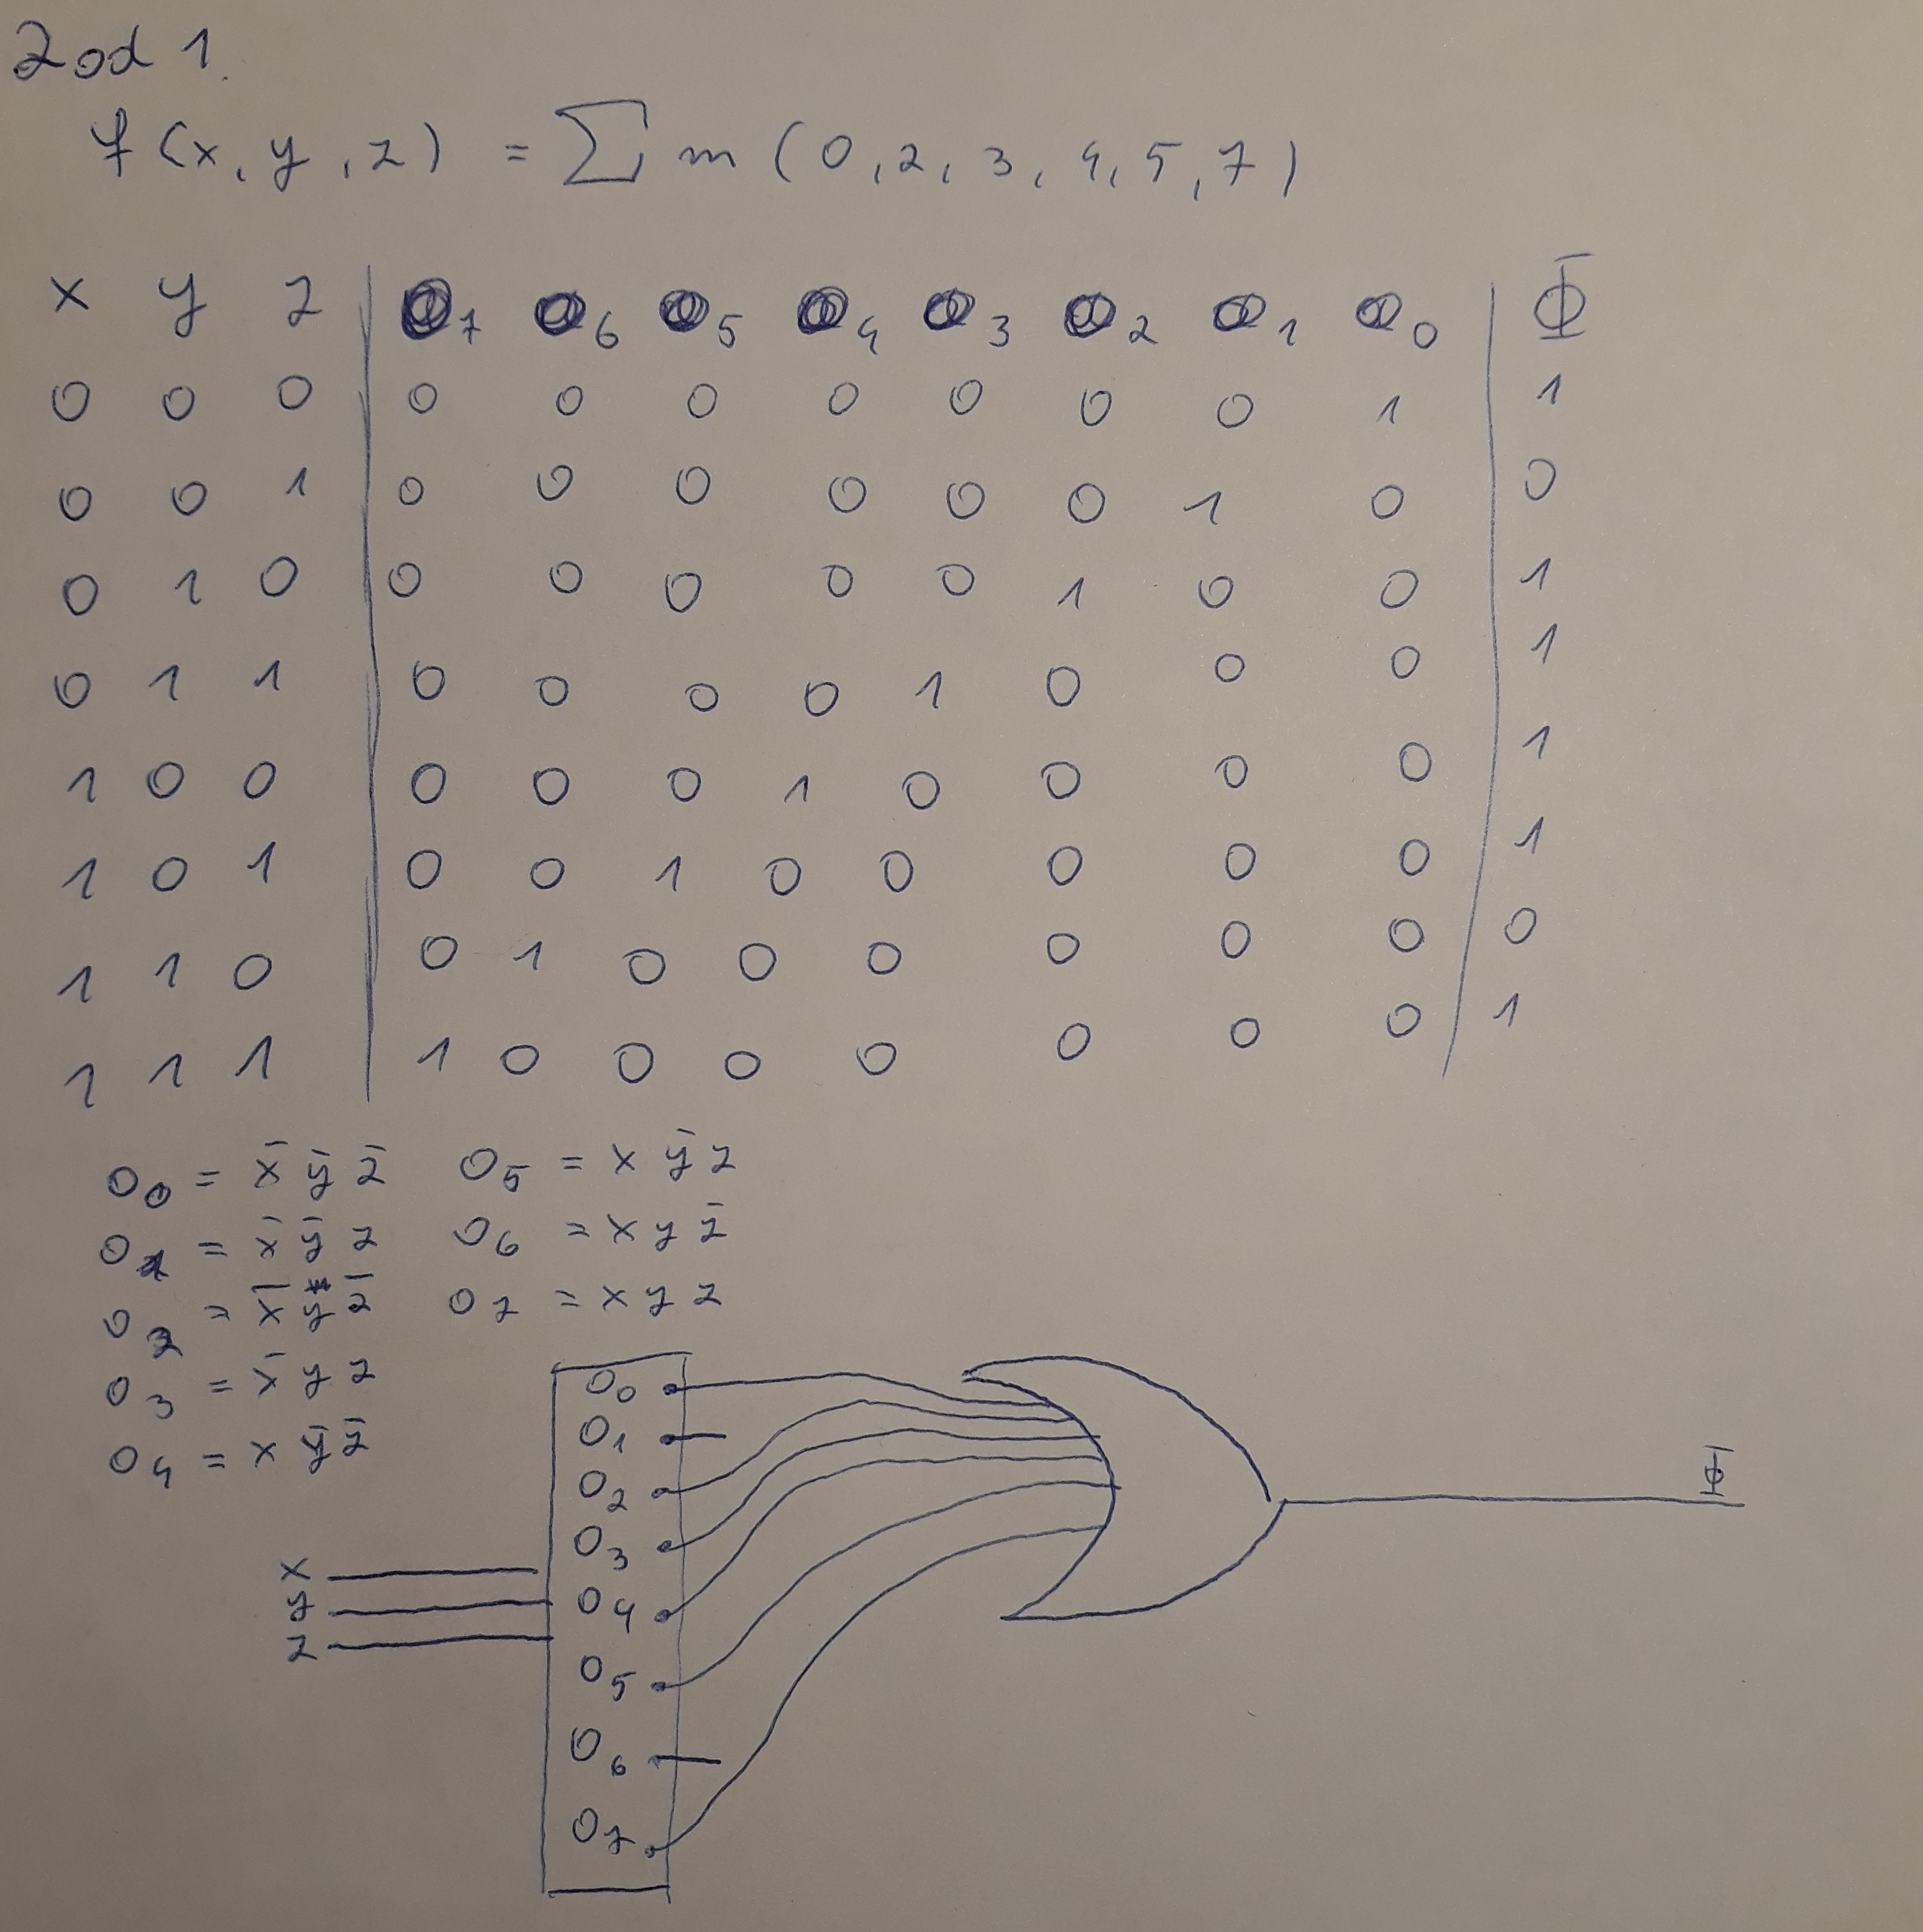 Zad 1.
f(x, y, z) = Σ m (0, 2, 3, 4, 5, 7)
x y z O₇ O₆ O₅ O₄ O₃ O₂ O₁ O₀ Φ
0 0 0 0 0 0 0 0 0 0 1 1
0 0 1 0 0 0 0 0 0 1 0 0
0 1 0 0 0 0 0 0 1 0 0 1
0 1 1 0 0 0 0 1 0 0 0 1
1 0 0 0 0 0 1 0 0 0 0 1
1 0 1 0 0 1 0 0 0 0 0 1
1 1 0 0 1 0 0 0 0 0 0 0
1 1 1 1 0 0 0 0 0 0 0 1
O₀ = x̄ ȳ z̄ O₅ = x ȳ z
O₁ = x̄ ȳ z O₆ = x y z̄
O₂ = x̄ y z̄ O₇ = x y z
O₃ = x̄ y z
O₄ = x ȳ z̄
O₀
O₁
O₂
O₃
x
y
z
O₄
O₅
O₆
O₇
Φ